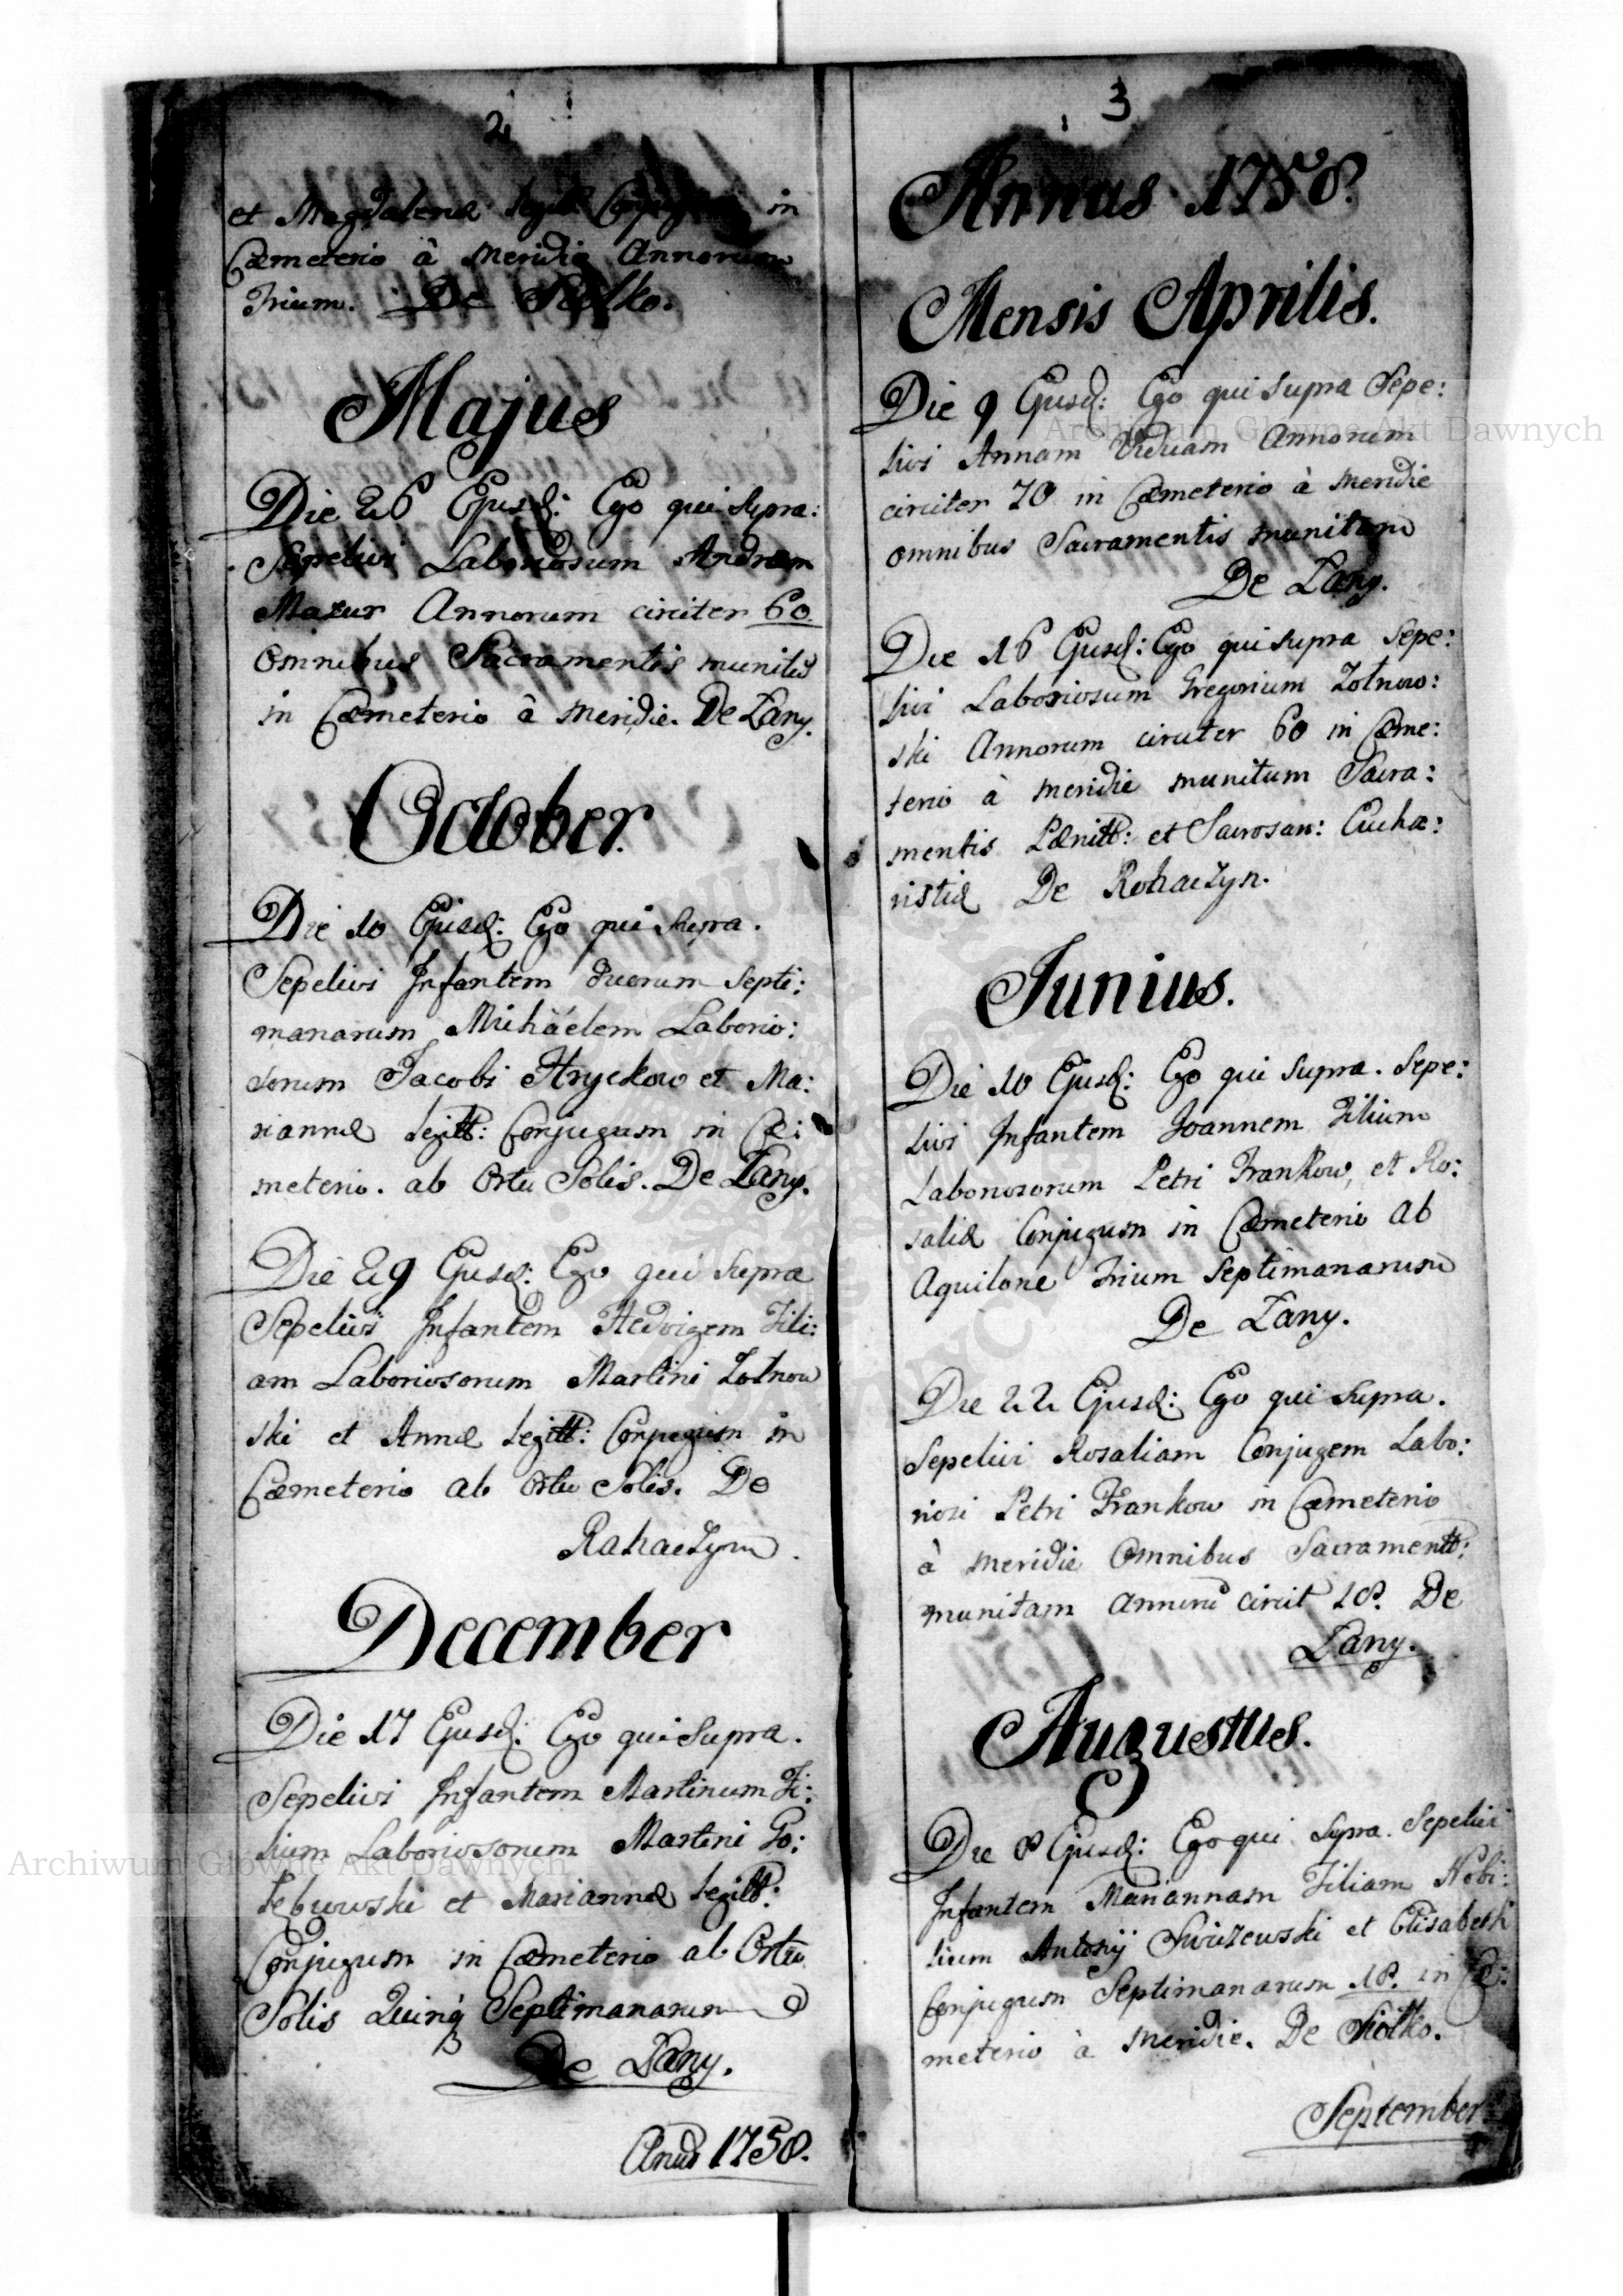 2
et Magdalenæ legitt: Conjugum in
Cæmeterio à meridie Annorum
Trium. De Siolko.
Majus
Die 26 Ejusd: Ego qui supra:
Sepelivi Laboriosum Andream
Mazur Annorum circiter 60
Omnibus Sacramentis munitū
in Cæmeterio à meridie. De Łany.
October.
Die 10 Ejusd: Ego qui supra.
Sepelivi Infantem duorum septi:
manarum Michäelem Laborio:
sorum Jacobi Hryckow et Ma:
riannæ legitt: Conjugum in Cæ:
meterio. ab Ortu Solis. De Łany.
Die 29 Ejusd: Ego qui supra
Sepelivi Infantem Hedvigem Fili:
am Laboriosorum Martini Zołnow
ski et Annæ legitt: Conjugum in
Cæmeterio ab Ortu Solis. De
Rahaczyn.
December
Die 17 Ejusd: Ego qui supra.
Sepelivi Infantem Martinum Fi:
lium Laboriosorum Martini Go:
łębiowski et Mariannæ legitt:
Conjugum in Cæmeterio ab Ortu
Solis Quinq Septimanarum
De Łany.
Annus 1758.
3
Annus 1758.
Mensis Aprilis.
Die 9 Ejusd: Ego qui supra Sepe:
livi Annam Viduam Annorum
circiter 70 in Cæmeterio à meridie
omnibus Sacramentis munitam
De Łany.
Die 16 Ejusd: Ego qui supra Sepe:
livi Laboriosum Gregorium Zołnow:
ski Annorum circiter 60 in Cæme:
terio à meridie munitum Sacra:
mentis Pænitt: et Sacrosan: Eucha:
ristiæ De Rohaczyn.
Junius.
Die 10 Ejusd: Ego qui supra. Sepe:
livi Infantem Joannem Filium
Laboriosorum Petri Frankow, et Ro:
saliæ Conjugum in Cæmeterio ab
Aquilone Trium Septimanarum
De Łany.
Die 22 Ejusd: Ego qui supra.
Sepelivi Rosaliam Conjugem Labo:
riosi Petri Frankow in Cæmeterio
à meridie Omnibus Sacramentt:
munitam annorū circit 18. De
Łany.
Augustus.
Die 8 Ejusd: Ego qui supra. Sepelivi
Infantem Mariannam Filiam Nobi:
lium Antonij Swiżewski et Elisabeth
Conjugum Septimanarum 18. in Cæ:
meterio à Meridie. De Siołko.
September
Archiwum Główne Akt Dawnych
Archiwum Główne Akt Dawnych